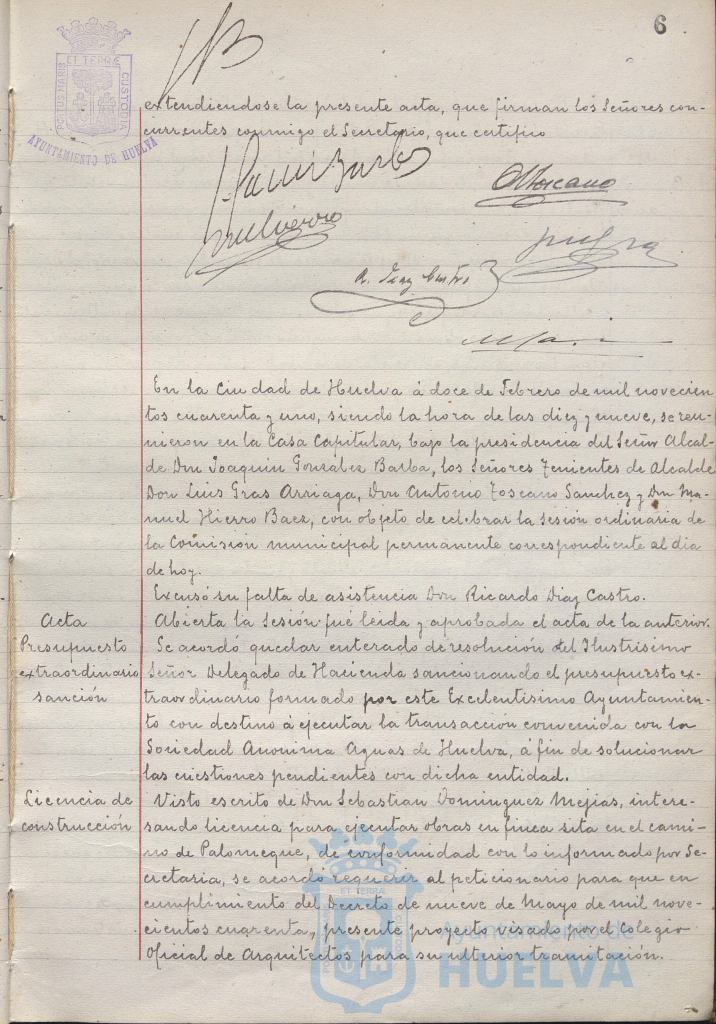 6
PORTUS MARIS ET TERRE CUSTODIA
AYUNTAMIENTO DE HUELVA
extendiendose la presente acta, que firman los Señores con-
currentes conmigo el Secretario, que certifico
R. Diaz Castro
En la Ciudad de Huelva á doce de Febrero de mil novecien
tos cuarenta y uno, siendo la hora de las diez y nueve, se reu-
nieron en la Casa Capitular, bajo la presidencia del Señor Alcal-
de Don Joaquin González Barba, los Señores Tenientes de Alcalde
Don Luis Gras Arriaga, Don Antonio Toscano Sanchez y Don Ma-
nuel Hierro Baez, con objeto de celebrar la sesión ordinaria de
la Comisión municipal permanente correspondiente al dia
de hoy.
Excusó su falta de asistencia Don Ricardo Diaz Castro.
Acta
Abierta la sesión fué leida y aprobada el acta de la anterior.
Presupuesto
extraordinario
sanción
Se acordó quedar enterado de resolución del Ilustrisimo
Señor Delegado de Hacienda sancionando el presupuesto ex-
traordinario formado por este Excelentisimo Ayuntamien-
to con destino á ejecutar la transacción convenida con la
Sociedad Anonima Aguas de Huelva, á fin de solucionar
las cuestiones pendientes con dicha entidad.
Licencia de
construcción
Visto escrito de Don Sebastian Dominguez Mejias, intere-
sando licencia para ejecutar obras en finca sita en el cami-
no de Palomeque, de conformidad con lo informado por Se-
cretaria, se acordó requerir al peticionario para que en
cumplimiento del Decreto de nueve de Mayo de mil nove-
cientos cuarenta, presente proyecto visado por el Colegio
Oficial de Arquitectos para su ulterior tramitación.
Ayuntamiento de
HUELVA